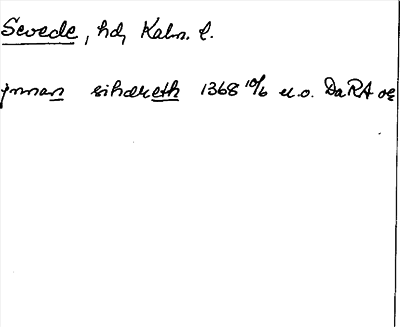 Sevede, hd, Kalm. l.
jnnan sihdræth 1368 10/6 u.o. DaRA or